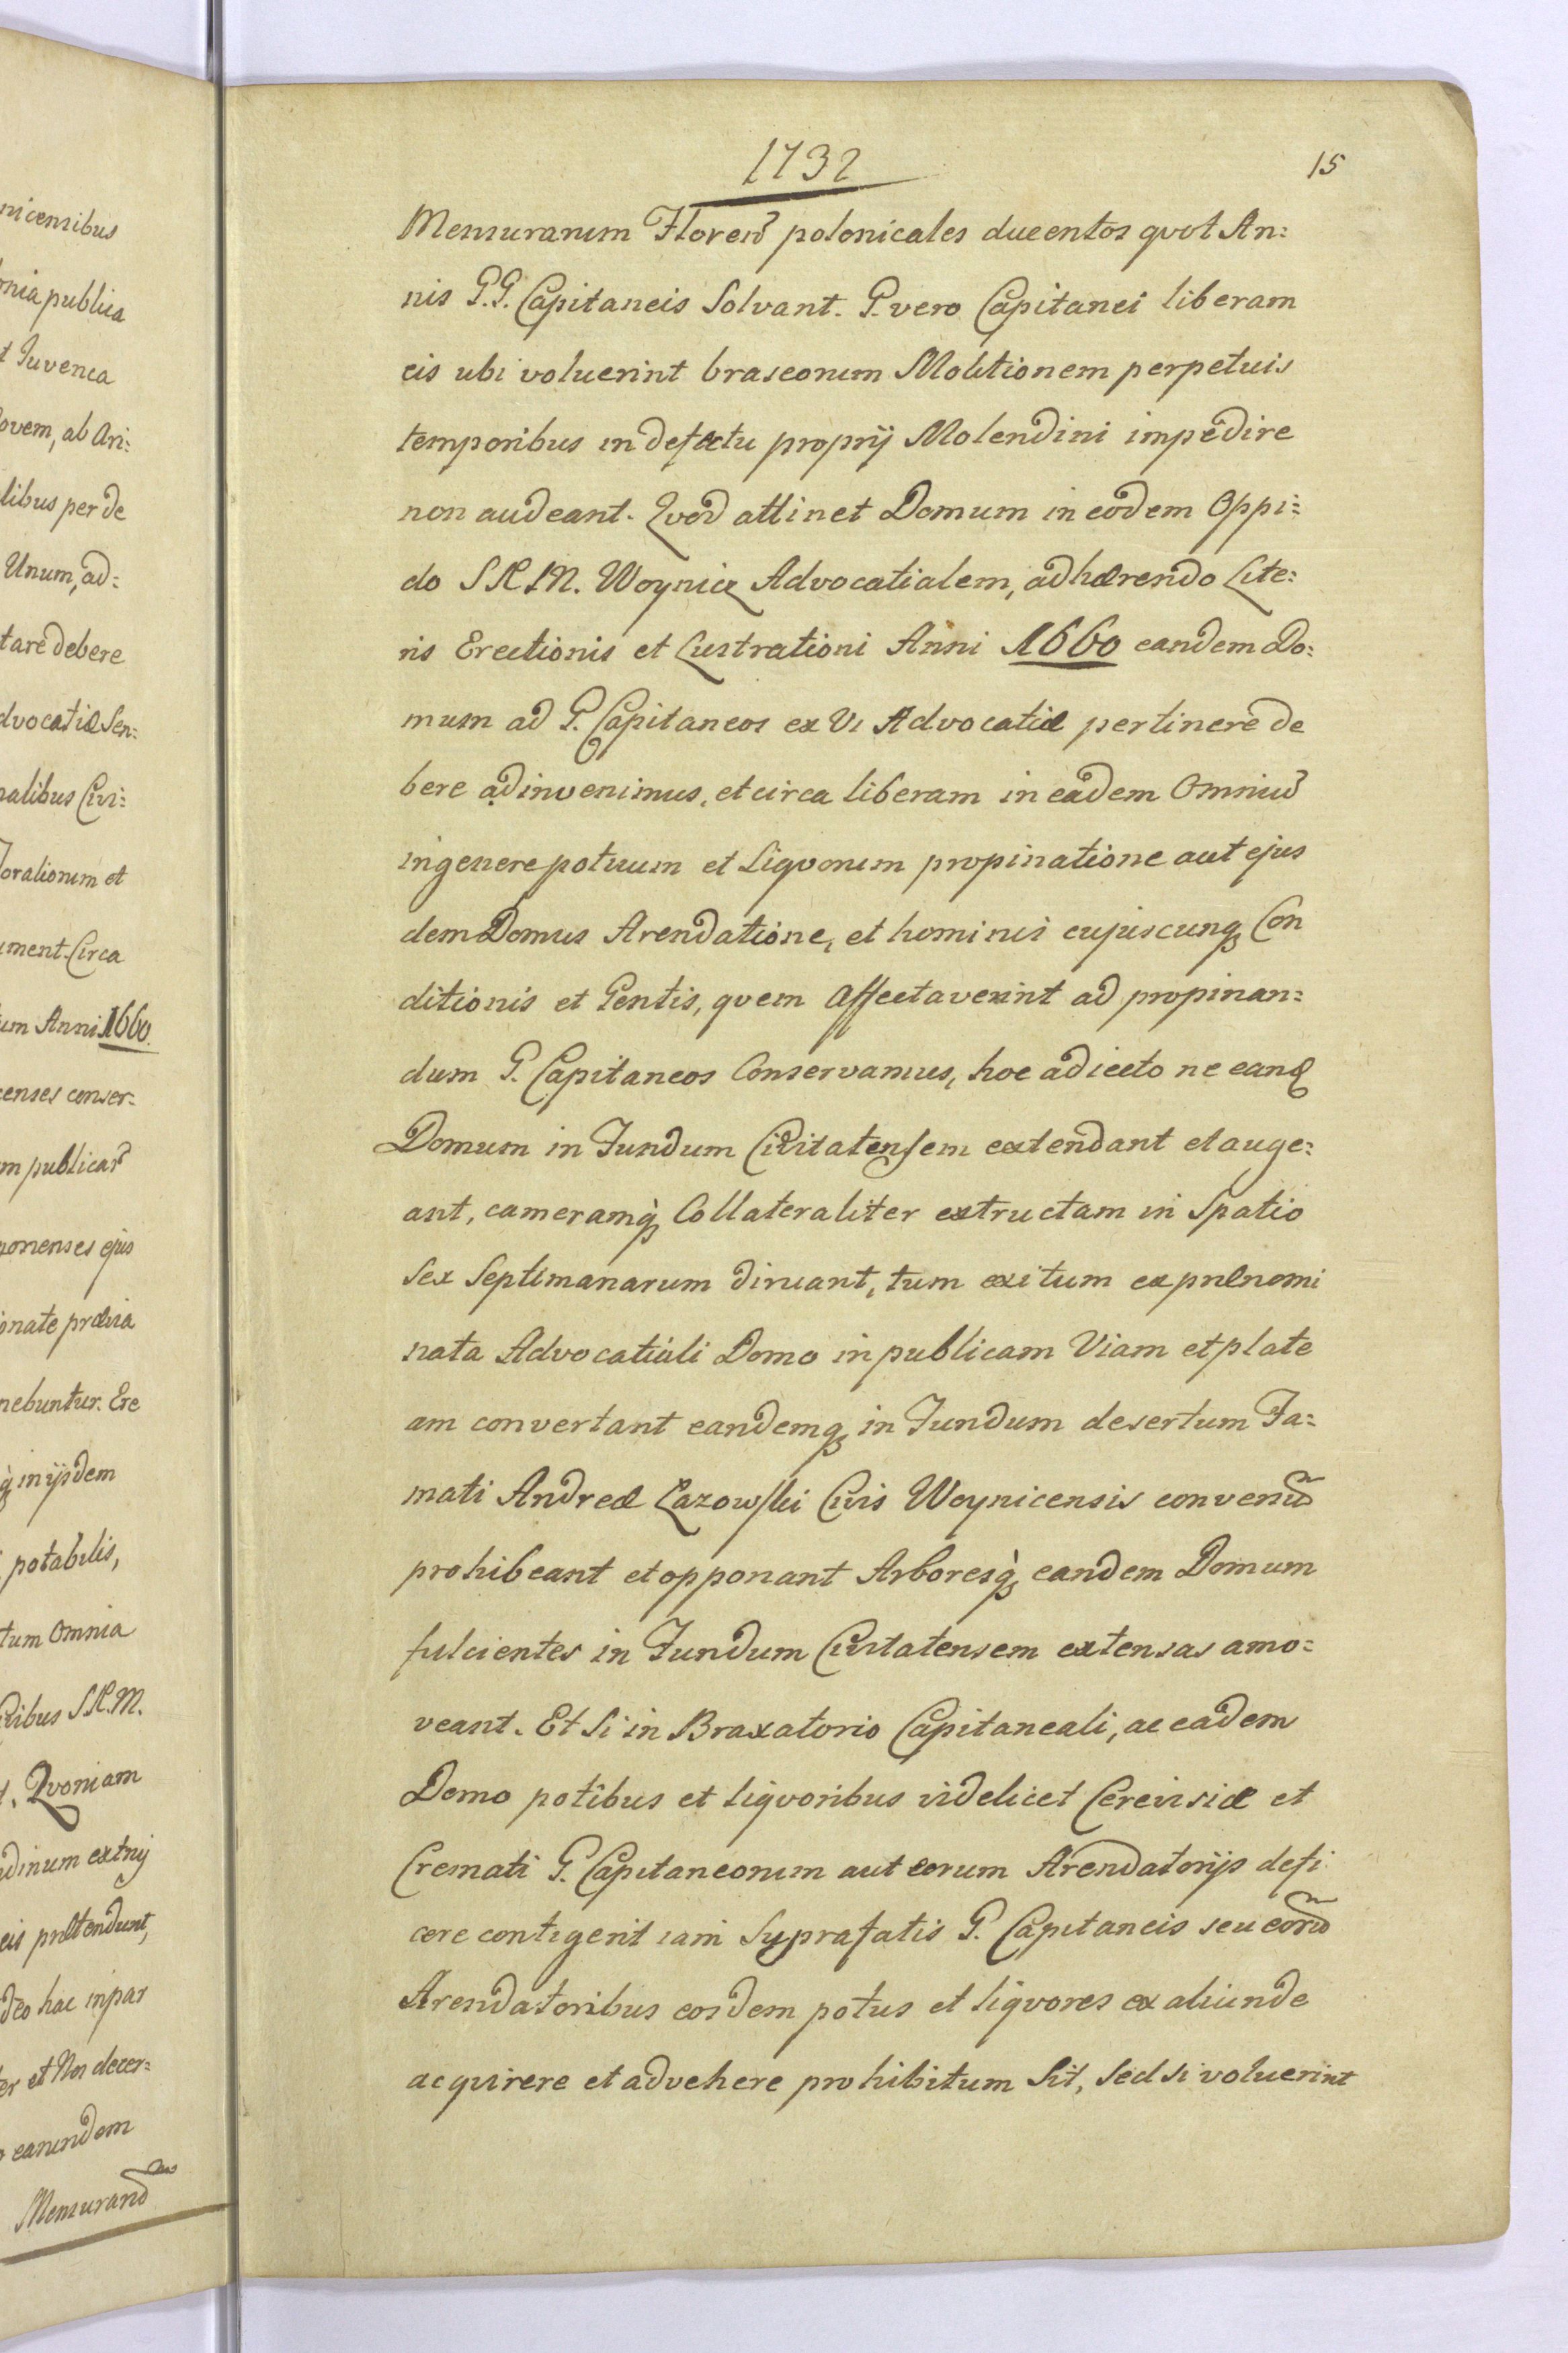 nicensibus
onia publica
t Juvenca
ovem, ab Ari:
libus per de
Unum, ad:
tare debere
dvocatiæ Sen:
nalibus Civi:
oralionum et
ment. Circa
um Anni 1660.
censes conser:
m publicar̃
xonenses ejus
onate prævia
nebuntur. Ere
q̀ in ijsdem
potabilis,
tum omnia
ribus S.R.M.
t. Qvoniam
dinum extrŋ
eis prætendunt,
deo hac inpar
er et Nos decer:
earundem
Mensurarũ
1732
15
Mensurarum Floreñ polonicales ducentos qvot An:
nis G.G. Capitaneis Solvant. G. vero Capitanei liberam
eis ubi voluerint braseorum Molitionem perpetuis
temporibus in defectu proprij Molendini impedire
non audeant. Qvod attinet Domum in eodem Oppi:
do S R M. Woyniæ Advocatialem, adhærendo Lite:
ris Erectionis et Lustrationi Anni 1660 eandem Do:
mum ad G. Capitaneos ex Vi Advocatiæ pertinere de
bere adinvenimus, et circa liberam in eadem Omniũ
in genere potuum et Liqvorum propinatione aut ejus
dem Domus Arendatione, et hominis cujuscunq Con
ditionis et Gentis, qvem affectaverint ad propinan:
dum G. Capitaneos Conservamus, hoc adiecto ne eand
Domum in Fundum Civitatensem extendant et auge:
ant, cameramq̀ Collateraliter extructam in Spatio
Sex Septimanarum diruant, tum exitum ex prænomi
nata Advocatiali Domo in publicam Viam et plate
am convertant eandemq in Fundum desertum Fa:
mati Andreæ Lazowski Civis Woynicensis conventũ
prohibeant et opponant Arboresq̀ eandem Domum
fulcientes in Fundum Civitatensem extensas amo:
veant. Et Si in Braxatorio Capitaneali, ac eadem
Domo potibus et liqvoribus videlicet Cerevisiæ et
Cremati G. Capitaneorum aut eorum Arendatorijs defi
cere contigerit iam Suprafatis G. Capitaneis seu eorũ
Arendatoribus eosdem potus et liqvores ex aliunde
acqvirere et advehere prohibitum Sit, Sed si voluerint